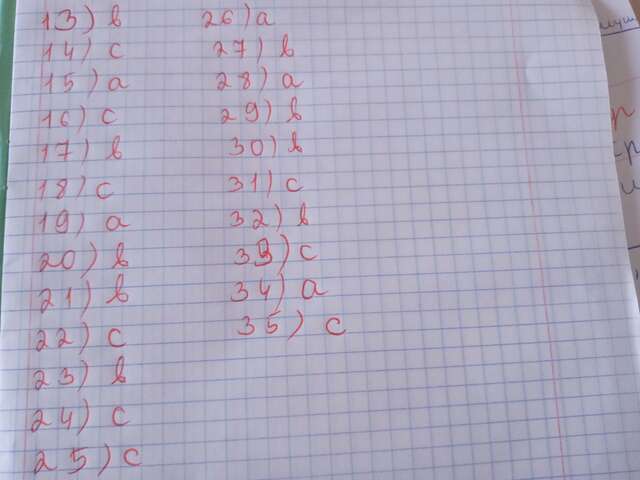 13) b
14) c
15) a
16) c
17) b
18) c
19) a
20) b
21) b
22) c
23) b
24) c
25) c
26) a
27) b
28) a
29) b
30) b
31) c
32) b
33) c
34) a
35) c